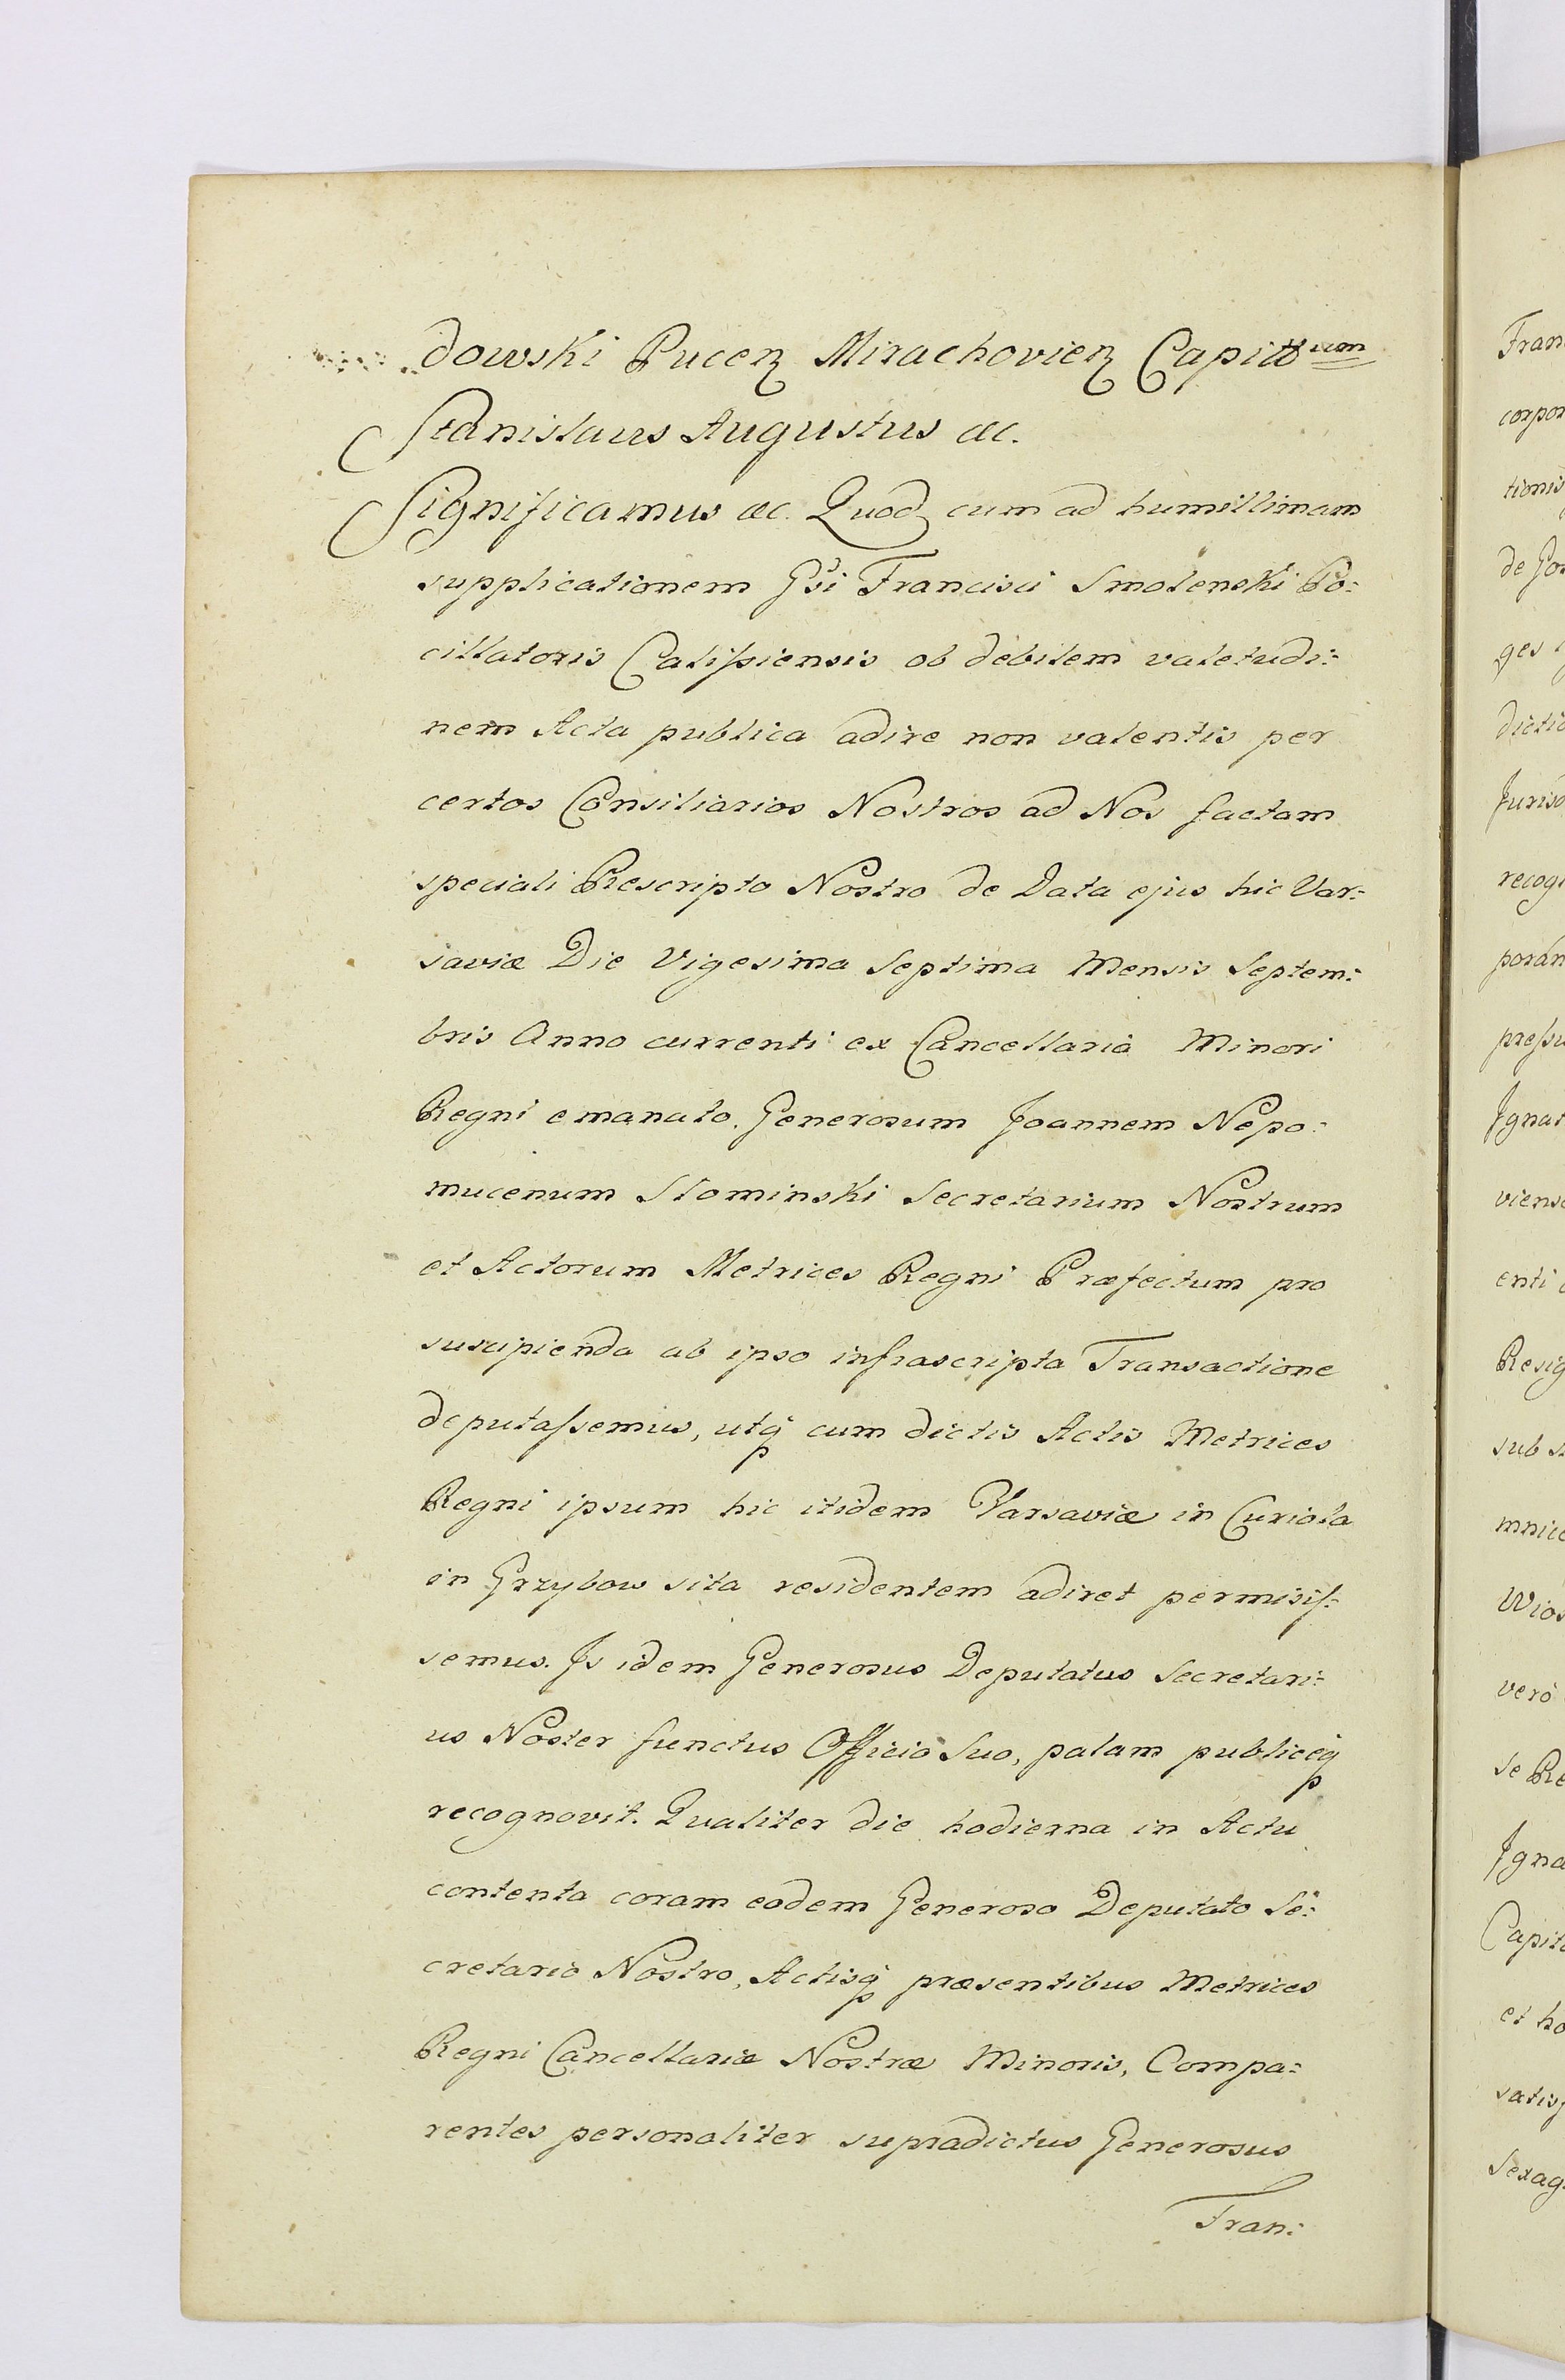 dowski Pucen Mirachovien Capittum
Stanislaus Augustus &c.
Significamus &c. Quod cum ad humillimam
supplicationem Gsi Francisci Smolenski Po:
cillatoris Calissiensis ob debilem valetudi:
nem Acta publica adire non valentis per
certos Consiliarios Nostros ad Nos factam
speciali Rescripto Nostro de Data ejus hic Var:
saviæ Die Vigesima Septima Mensis Septem:
bris Anno currenti ex Cancellaria Minori
Regni emanato. Generosum Joannem Nepo:
mucenum Slominski Secretarium Nostrum
et Actorum Metrices Regni Præfectum pro
suscipienda ab ipso infrascripta Transactione
deputassemus, utq cum dictis Actis Metrices
Regni ipsum hic itidem Varsaviæ in Curiola
in Grzybow sita residentem adiret permisis:
semus. Is idem Generosus Deputatus Secretari:
us Noster functus Officio Suo, palam publiceq
recognovit. Qualiter die hodierna in Actu
contenta coram eodem Generoso Deputato Se:
cretario Nostro, Actisq præsentibus Metrices
Regni Cancellariæ Nostræ Minoris, Compa:
rentes personaliter supradictus Generosus
Fran:
Fran
corpor
tionis
de Gos
ges
dictio
Jurisd
recog
poran
pressu
Ignat
viens
enti
Resig
sub
mnic
Wios
verò
se Re
Igna
Capit
et ho
satisf
Sexag